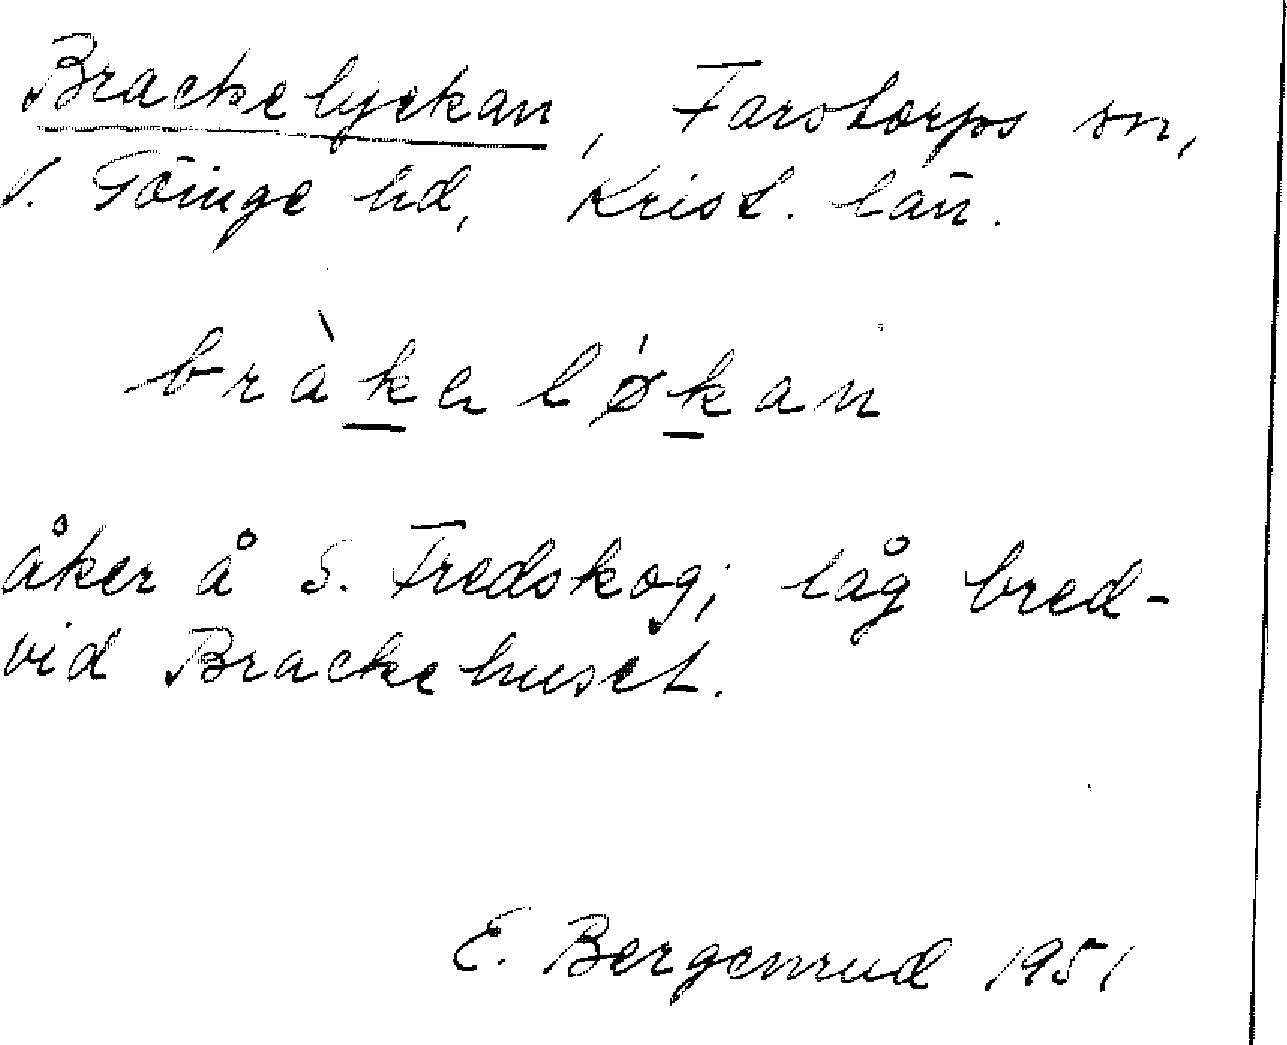 Brackelyckan, Farstorps sn,
V. Göinge hd, Krist. län.
bràkelǿkan
åker å S. Fredskog; låg bred-
vid Brackehuset.
E. Bergenrud 1951